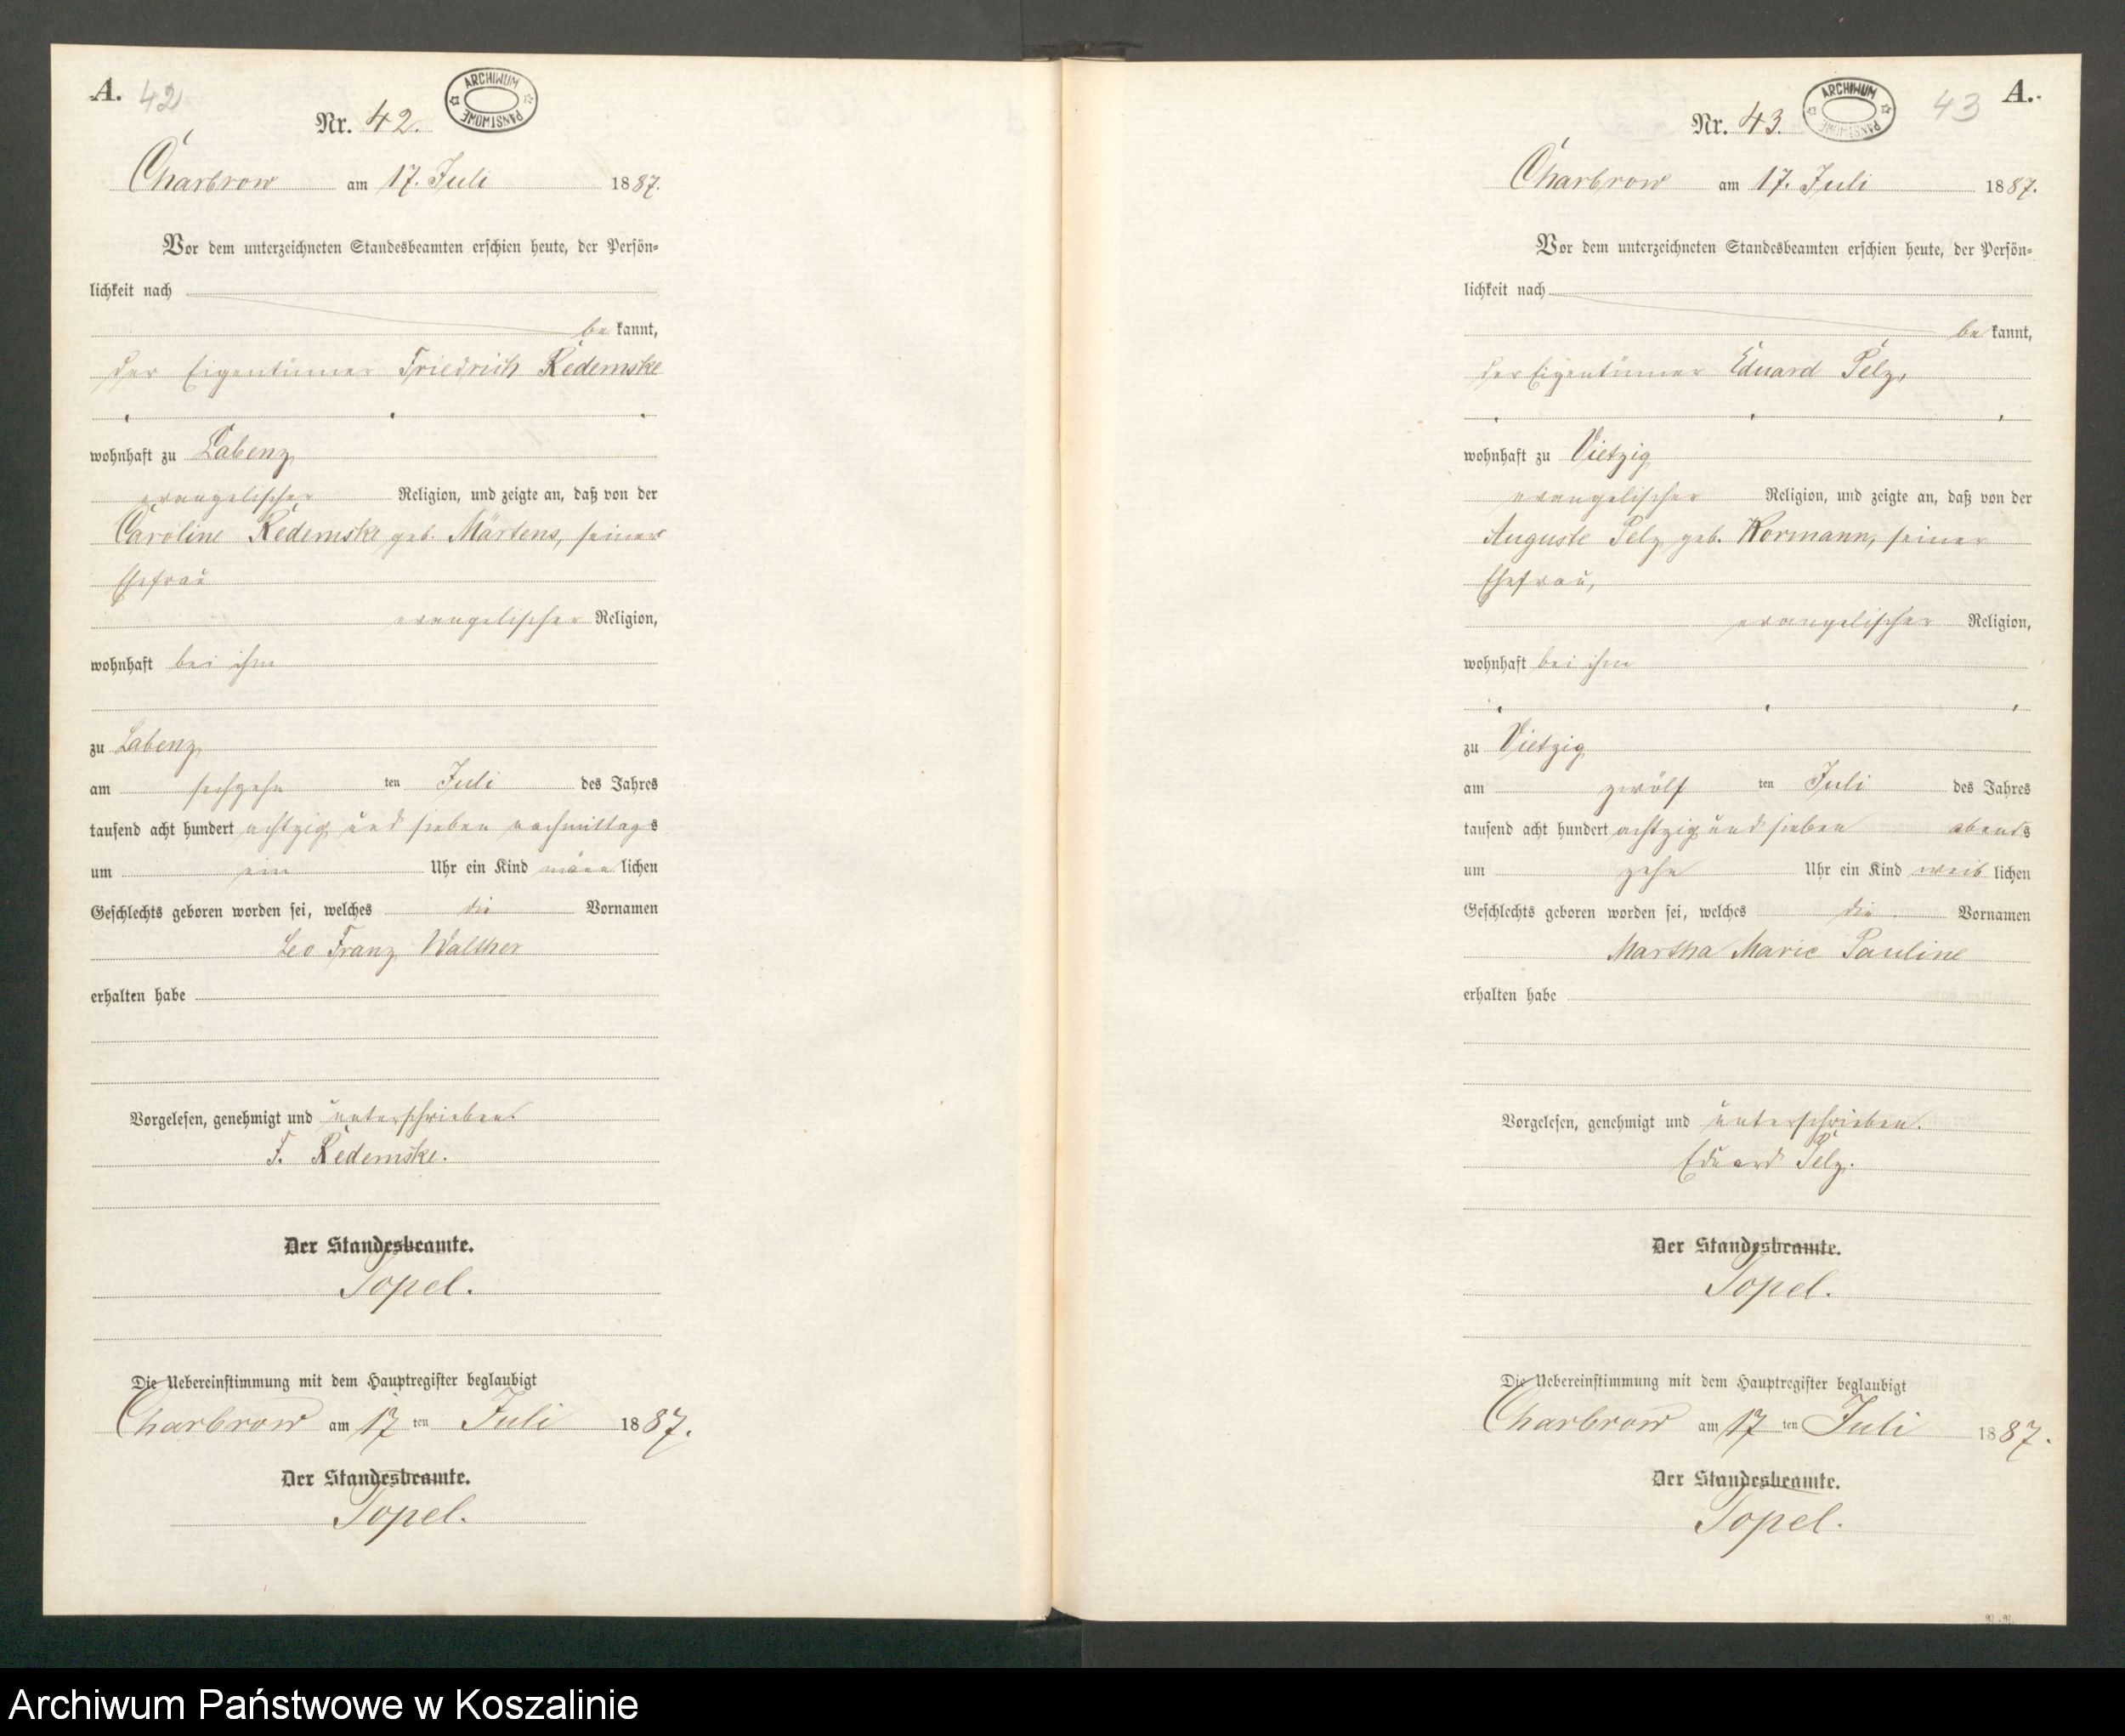 A. 42
Nr. 42.
ARCHIWUM PAŃSTWOWE
Charbrow am 17. Juli 1887.
Vor dem unterzeichneten Standesbeamten erschien heute, der Persön-
lichkeit nach
be kannt,
der Eigentümer Friedrich Redemske
wohnhaft zu Labenz,
evangelischer Religion, und zeigte an, daß von der
Caroline Redemske geb. Märtens, seiner
Ehefrau
evangelischer Religion,
wohnhaft bei ihm
zu Labenz,
am sechzehn ten Juli des Jahres
tausend acht hundert achtzig und sieben nachmittags
um ein Uhr ein Kind männlichen
Geschlechts geboren worden sei, welches die Vornamen
Leo Franz Walther
erhalten habe
Vorgelesen, genehmigt und unterschrieben.
F. Redemske.
Der Standesbeamte.
Topel.
Die Uebereinstimmung mit dem Hauptregister beglaubigt
Charbrow am 17 ten Juli 1887.
Der Standesbeamte.
Topel.
43 A.
Nr. 43.
ARCHIWUM PAŃSTWOWE
Charbrow am 17. Juli 1887.
Vor dem unterzeichneten Standesbeamten erschien heute, der Persön-
lichkeit nach
be kannt,
der Eigentümer Eduard Pelz,
wohnhaft zu Vietzig
evangelischer Religion, und zeigte an, daß von der
Auguste Pelz geb. Kormann, seiner
Ehefrau,
evangelischer Religion,
wohnhaft bei ihm
zu Vietzig
am zwölf ten Juli des Jahres
tausend acht hundert achtzig und sieben abends
um zehn Uhr ein Kind weiblichen
Geschlechts geboren worden sei, welches die Vornamen
Martha Marie Pauline
erhalten habe
Vorgelesen, genehmigt und unterschrieben.
Eduard Pelz.
Der Standesbeamte.
Topel.
Die Uebereinstimmung mit dem Hauptregister beglaubigt
Charbrow am 17 ten Juli 1887.
Der Standesbeamte.
Topel.
Archiwum Państwowe w Koszalinie